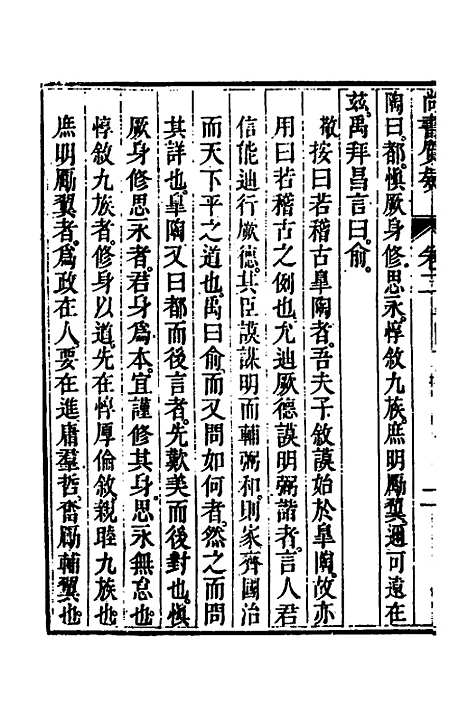 尚書質疑
卷二
二
陶曰都愼厥身修思永惇敘九族庶明勵翼邇可遠在
玆禹拜昌言曰俞
敬按曰若稽古皐陶者吾夫子敘謨始於皐陶故亦
用曰若稽古之例也允迪厥德謨明弼諧者言人君
信能迪行厥德其臣謨謀明而輔弼和則家齊國治
而天下平之道也禹曰俞而又問如何者然之而問
其詳也皐陶又曰都而後言者先歎美而後對也愼
厥身修思永者君身爲本宜謹修其身思永無怠也
惇敘九族者修身以道先在惇厚倫敘親睦九族也
庶明勵翼者爲政在人要在進庸羣哲奮勵輔翼也